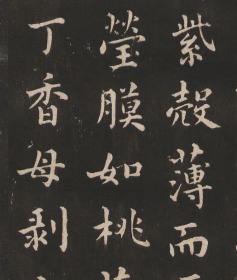 紫殼薄而
瑩膜如桃
丁香母剥